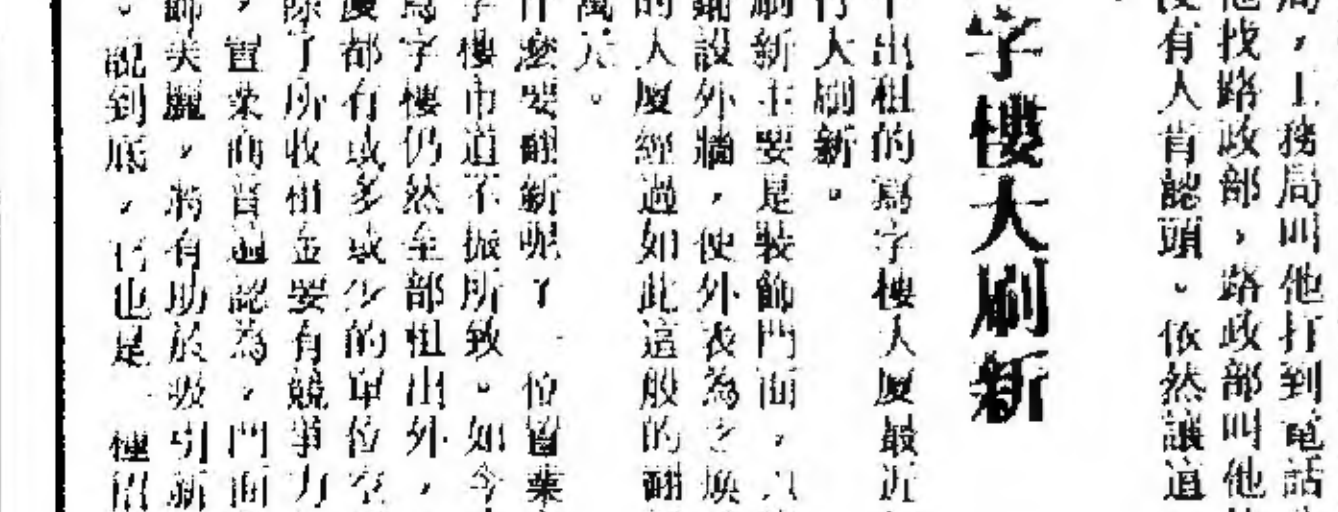 局，工務局叫他打到電話
他找路政部，路政部叫他
沒有人肯認頭。依然讓這
字樓大刷新
出租的寫字樓大廈最近
行大刷新。
刷新主要是裝飾門面，
鋪設外牆，使外表為之煥
的大廈經過如此這般的翻
萬元。
什麼要翻新呢？一位置業
字樓市道不振所致。如今
寫字樓仍然全部租出外，
廈都有或多或少的單位空
除了所收租金要有競爭力
，置業商普遍認為，門面
飾美麗，將有助於吸引新
。說到底，它也是一種招